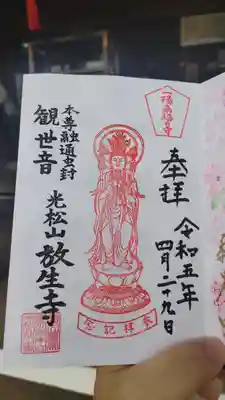 奉拝
令和五年
四月二十九日
本尊融通虫封
観世音
光松山放生寺
参拝記念